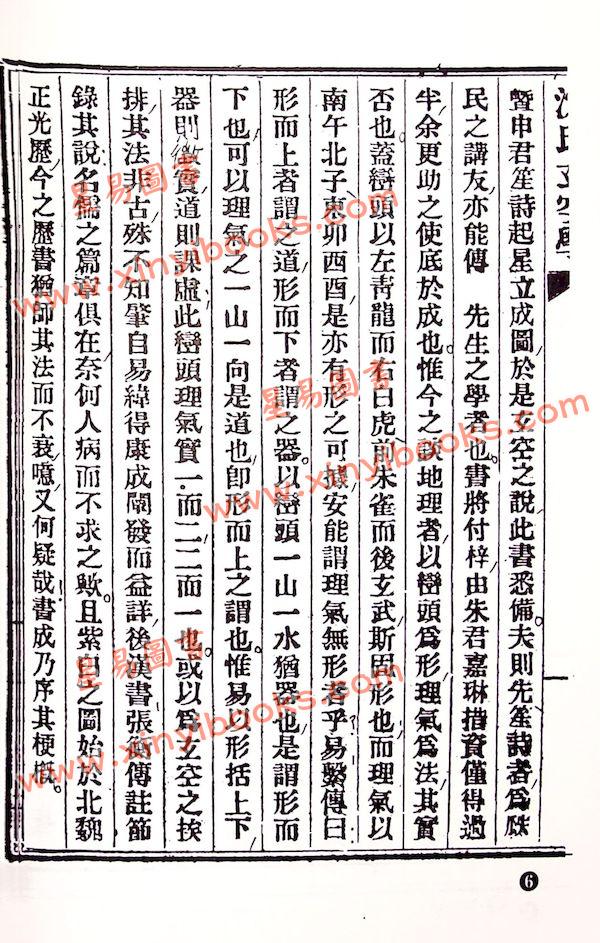 沈氏玄空學
暨申君笙詩起星立成圖於是玄空之說此書悉備夫則先笙詩者爲瓞
民之講友亦能傳　先生之學者也。書將付梓由朱君嘉琳措資僅得過
半余更助之使底於成也。惟今之談地理者以巒頭爲形理氣爲法其實
否也。蓋巒頭以左靑龍而右白虎前朱雀而後玄武斯固形也而理氣以
南午北子東卯西酉是亦有形之可據安能謂理氣無形者乎易繫傳曰
形而上者謂之道形而下者謂之器以巒頭一山一水猶器也是謂形而
下也可以理氣之一山一向是道也卽形而上之謂也。惟易以形括上下
器則徵實道則課虛此巒頭理氣實一而二二而一也。或以爲玄空之挨
排其法非古殊不知肇自易緯得康成闡發而益詳後漢書張衡傳註節
錄其說名儒之篇章俱在奈何人病而不求之歟。且紫白之圖始於北魏
正光歷今之歷書猶師其法而不衰噫又何疑哉書成乃序其梗概。
6
星易圖書
www.xinyibooks.com
星易圖書
www.xinyibooks.com
星易圖書
www.xinyibooks.com